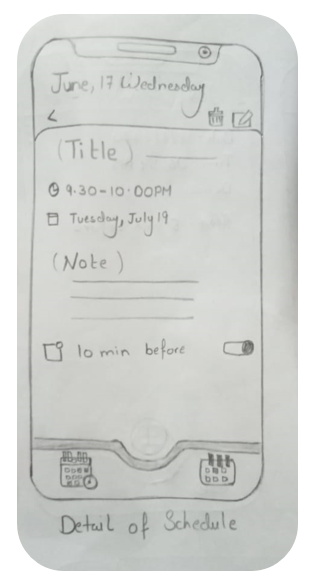 June, 17 Wednesday
<
(Title)
9.30-10.00PM
Tuesday, July 19
(Note)
10 min before
Detail of Schedule